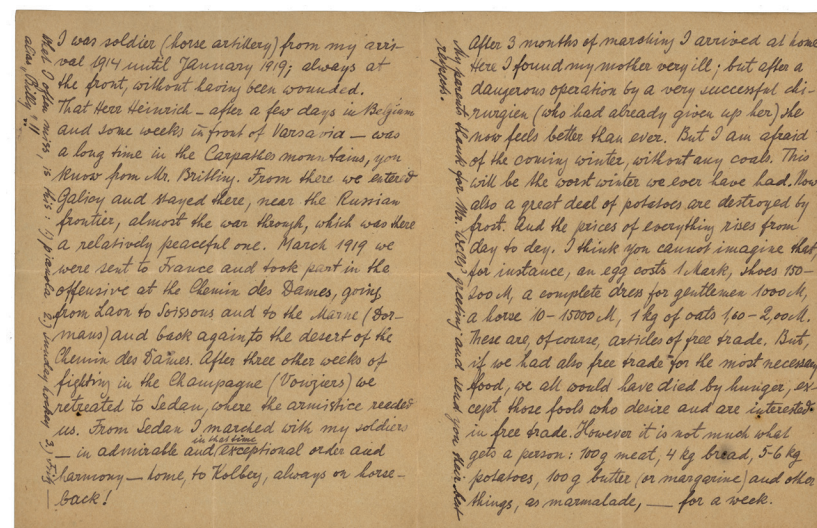 I was soldier (horse artillery) from my arri-
val 1914 until January 1919; always at
the front, without having been wounded.
That Herr Heinrich – after a few days in Belgium
and some weeks in front of Varsavia – was
a long time in the Carpathes mountains, you
know from Mr. Brittiny. From there we entered
Galicy and stayed there, near the Russian
frontier, almost the war through, which was there
a relatively peaceful one. March 1919 we
were sent to France and took part in the
offensive at the Chemin des Dames, going
from Laon to Soissons and to the Marne (Dor-
mans) and back again, to the desert of the
Chemin des Dames. After three other weeks of
fighting in the Champagne (Vouziers) we
retreated to Sedan, where the armistice
us. From Sedan I marched with my soldiers
in that time
– in admirable and exceptional order and
harmony – home, to Kolberg, always on horse-
back!
that I often miss, is this: 1) pianola 2) sunday hockey 3) Friz –
alias „Billy“!!
After 3 months of marching I arrived at home
Here I found my mother very ill; but after a
dangerous operation by a very successful chi-
rurgien (who had already given up her) she
now feels better than ever. But I am afraid
of the coming winter, without any coals. This
will be the worst winter we ever have had. Now
also a great deal of potatoes are destroyed by
frost. And the prices of everything rises from
day to day. I think you cannot imagine that,
for instance, an egg costs 1 Mark, shoes 150-
200 M, a complete dress for gentlemen 1000 M,
a horse 10-15000 M, 1 kg of oats 1,60-2,00 M.
These are, of course, articles of free trade. But,
if we had also free trade for the most necessary
food, we all would have died by hunger, ex-
cept those fools who desire and are interested
in free trade. However it is not much what
gets a person: 100 g meat, 4 kg bread, 5-6 kg
potatoes, 100 g butter (or margarine) and other
things, as marmalade, — for a week.
My parents thank for Mr. greeting and send you their best
regards.